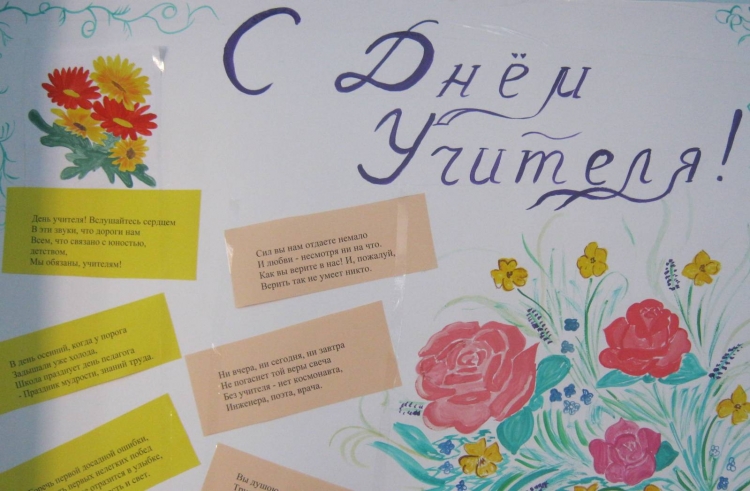 С Днём
Учителя!
День учителя! Вслушайтесь сердцем
В эти звуки, что дороги нам
Всем, что связано с юностью,
детством,
Мы обязаны, учителям!
Сил вы нам отдаете немало
И любви - несмотря ни на что.
Как вы верите в нас! И, пожалуй,
Верить так не умеет никто.
В день осенний, когда у порога
Задышали уже холода,
Школа празднует день педагога
- Праздник мудрости, знаний труда.
Ни вчера, ни сегодня, ни завтра
Не погаснет той веры свеча
Без учителя - нет космонавта,
Инженера, поэта, врача.
первой досадной ошибки,
первых нелегких побед
отразится в улыбке,
и свет.
Вы